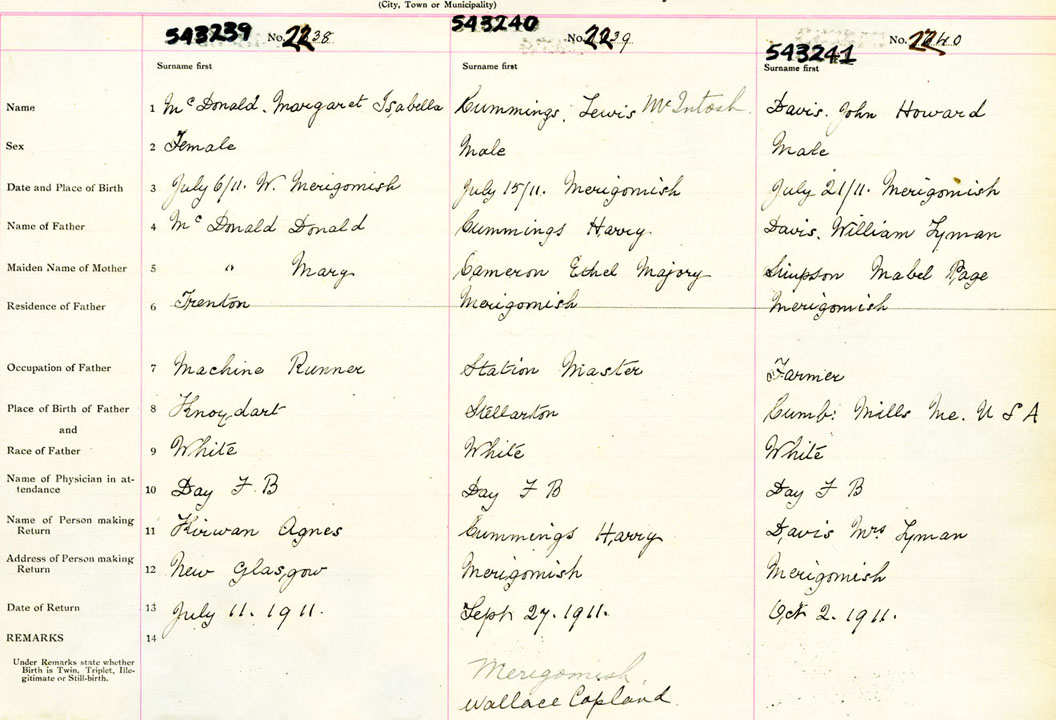 (City, Town or Municipality)
543239 No. 2238 543240 No. 2239 543241 No. 2240
Surname first Surname first Surname first
Name 1 Mc Donald. Margaret Isabella Cummings, Lewis McIntosh. Davis. John Howard
Sex 2 Female Male Male
Date and Place of Birth 3 July 6/11. W. Merigomish July 15/11. Merigomish July 21/11. Merigomish
Name of Father 4 Mc Donald Donald Cummings Harry. Davis. William Lyman
Maiden Name of Mother 5 " Mary Cameron Ethel Majory Simpson Mabel Page
Residence of Father 6 Trenton Merigomish Merigomish
Occupation of Father 7 Machine Runner Station Master Farmer
Place of Birth of Father 8 Knoydart Stellarton Cumb: Mills Me. U S A
and
Race of Father 9 White White White
Name of Physician in at-
tendance 10 Day F B Day F B Day F B
Name of Person making
Return 11 Kirwan Agnes Cummings Harry Davis Mrs Lyman
Address of Person making
Return 12 New Glasgow Merigomish Merigomish
Date of Return 13 July 11. 1911. Sept 27. 1911. Oct 2. 1911.
REMARKS 14
Under Remarks state whether
Birth is Twin, Triplet, Ille-
gitimate or Still-birth.
Merigomish
Wallace Copland